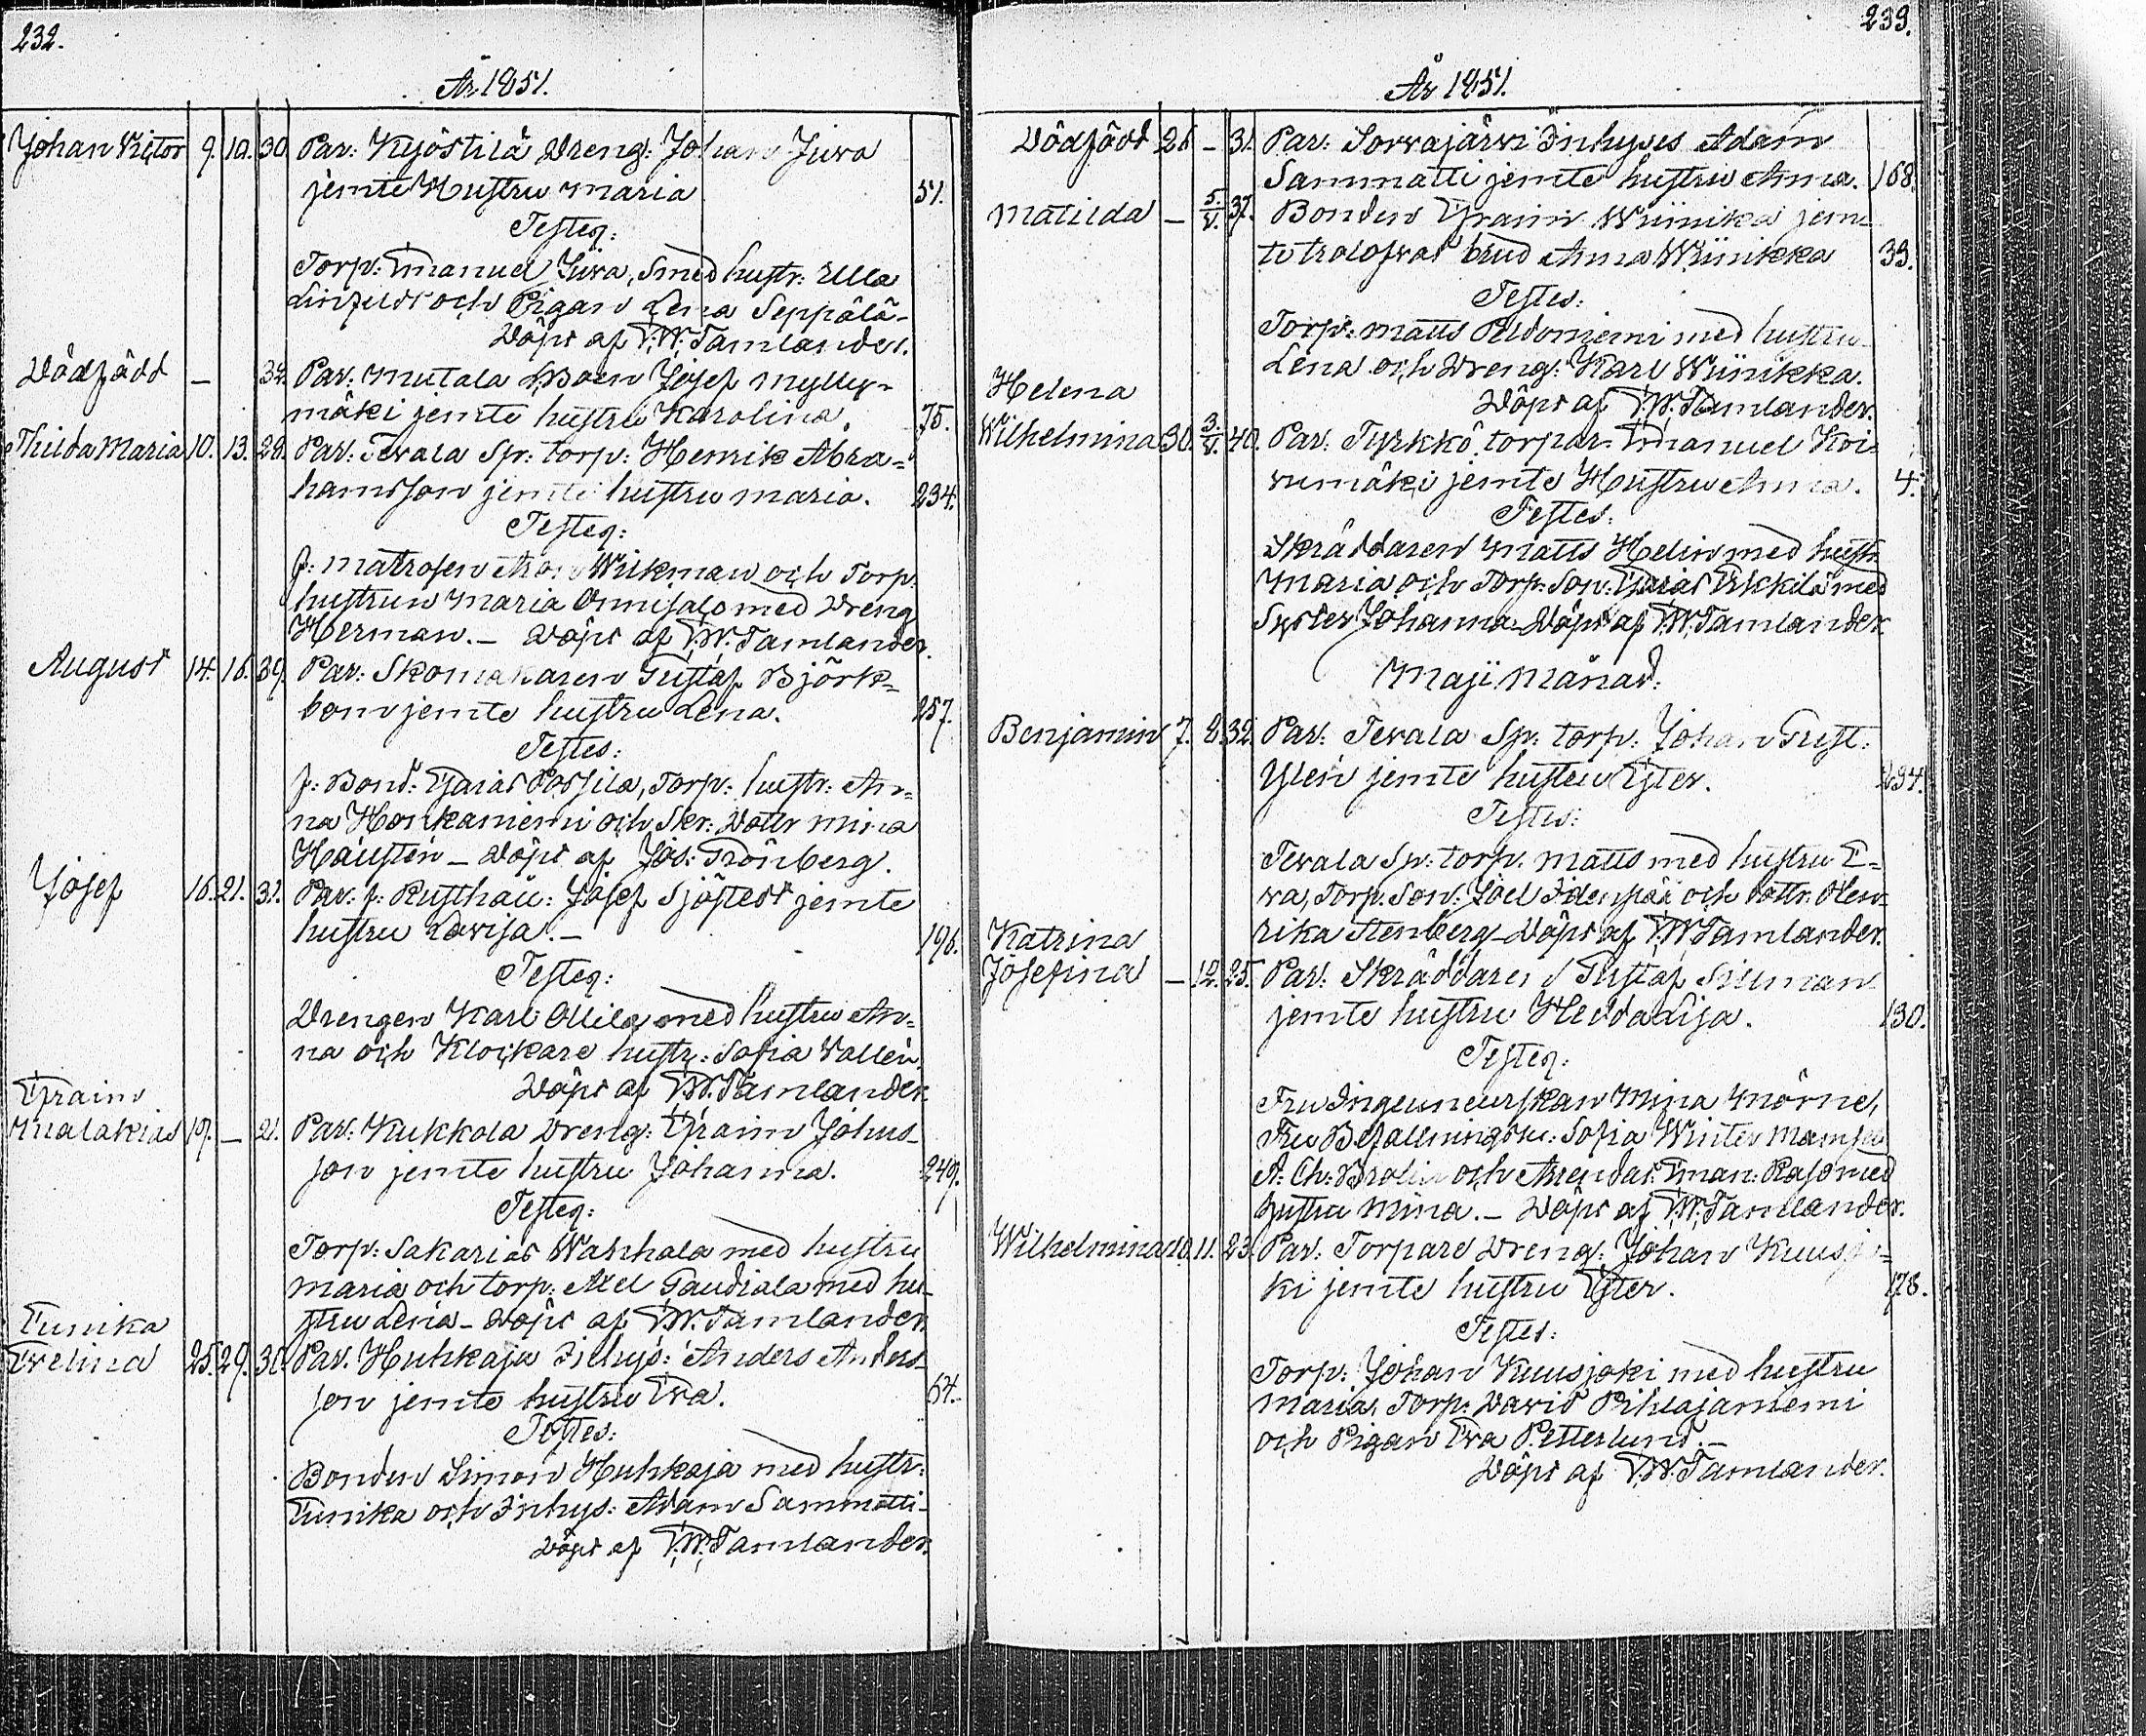 232.
År 1851.
Johan Victor 9. 10. 30. Par: Kyöstilä Dreng: Johan Juva
jemte Hustru Maria 51.
Testes:
Torp: Emanuel Juva, Smed hustr: Ulla
och Pigan Lena Seppälä.
Döpt af F.W. Tamlander.
Dödfödd — 32. Par: Mutala Josef Mylly-
mäki jemte hustru Karolina. 75.
Thilda Maria 10. 13. 28. Par: Tevala Sp: torp: Henrik Abra-
hamsson jemte hustru Maria. 234.
Testes:
f: Matrosen Wikman och Torp:
hustrun Maria Onnisalo med Dreng
Herman. — Döpt af F.W. Tamlander.
August 14. 16. 39. Par: Skomakaren Gustaf Björk-
bom jemte hustru Lena. 257.
Testes:
f: Bond: Esaias Possila, Torp: hustr: An-
na Honkaniemi och Skr: Dottr Mina
Hausten — Döpt af Jos: Grönberg.
Josef 16. 21. 31. Par: f: Rusthåll: Josef Sjöstedt jemte
hustru Lovisa. — 196.
Testes:
Drengen Karl Ollila med hustru An-
na och Klockare hustr: Sofia Vallen.
Döpt af F.W. Tamlander.
Efraim
Malakias 19. — 21. Par: Kukkola Dreng: Efraim Johns-
son jemte hustru Johanna. 249.
Testes:
Torp: Sakarias Wakhala med hustru
Maria och torp: Axel Gaudiala med hu-
stru Lena — Döpt af F.W. Tamlander.
Eunika
Evelina 25. 29. 36. Par. Huhkaja Inhys: Anders Anders-
son jemte hustru Eva. 64.
Testes:
Bonden Simon Huhkaja med hustr:
Eunika och Inhys: Adam Sammatti —
Döpt af F.W. Tamlander.
233.
År 1851.
Dödfödd 26 — 31. Par: Sorvajärvi Inhyses Adam
Sammatti jemte hustru Anna. 168.
Matilda — 5./V. 37. Bonden Efraim Wiinikka jem-
te trolofvad brud Anna Wiinikka 33.
Testes:
Torp: Matts Peldoniemi med hustru
Lena och Dreng: Karl Wiinikka.
Döpt af F.W. Tamlander.
Helena
Wilhelmina 30. 3./V. 40. Par: Tyrkkö torpar: Emanuel Koi-
vumäki jemte Hustru Anna. 4.
Testes:
Skräddaren Matts Helin med hustr:
Maria och Torp: Son: Esaias Erkkilä med
Syster Johanna. Döpt af F.W. Tamlander.
Maji Månad:
Benjamin 7. 8. 32. Par: Tevala Sp: torp: Johan Gust:
Ylén jemte hustru Ester. 234.
Testes:
Tevala Sp: torp: Matts med hustru E-
va, Torp: Son: Joel Idenpää och dottr: Hen-
rika Stenberg — Döpt af F.W. Tamlander.
Katrina
Josefina — 12. 25. Par: Skräddaren Gustaf Sillman
jemte hustru Hedda Lisa. 130.
Testes:
Fru Ingeuneurskan Mina Mörne,
Fru Befallningsm: Sofia Winter Mamsell
A: Ch: Brolin och Arendat: Eman: Raso med
hustru Mina. — Döpt af F.W. Tamlander.
Wilhelmina 10. 11. 23. Par: Torpare Dreng: Johan Kuusjo-
ki jemte hustru Ester. 178.
Testes:
Torp: Johan Kuusjoki med hustru
Maria, Torp: David Pihlajaniemi
och Pigan Eva Petterlund. —
Döpt af F.W. Tamlander.